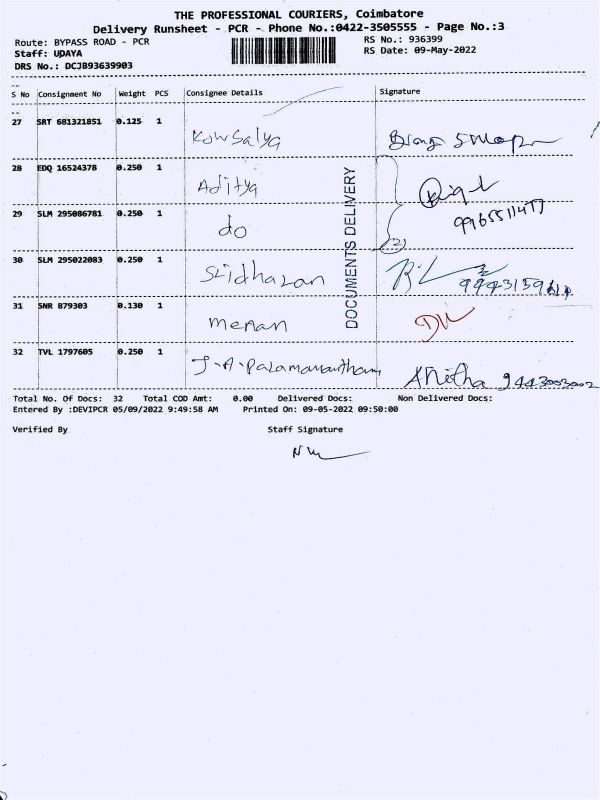 THE PROFESSIONAL COURIERS, Coimbatore
Delivery Runsheet - PCR - Phone No.:0422-3505555 - Page No.:3
Route: BYPASS ROAD - PCR
RS No.: 936399
Staff: UDAYA
RS Date: 09-May-2022
DRS No.: DCJB93639903
S No Consignment No Weight PCS Consignee Details Signature
27 SRT 681321851 0.125 1 Kowsalya
28 EDQ 16524378 0.250 1 Aditya
29 SLM 295086781 0.250 1 do
30 SLM 295022083 0.250 1 Sridharan
31 SNR 879303 0.130 1 menan
32 TVL 1797605 0.250 1 Anitha 9443003002
DOCUMENTS DELIVERY
Total No. Of Docs: 32 Total COD Amt: 0.00 Delivered Docs: Non Delivered Docs:
Entered By :DEVIPCR 05/09/2022 9:49:58 AM Printed On: 09-05-2022 09:50:00
Verified By Staff Signature